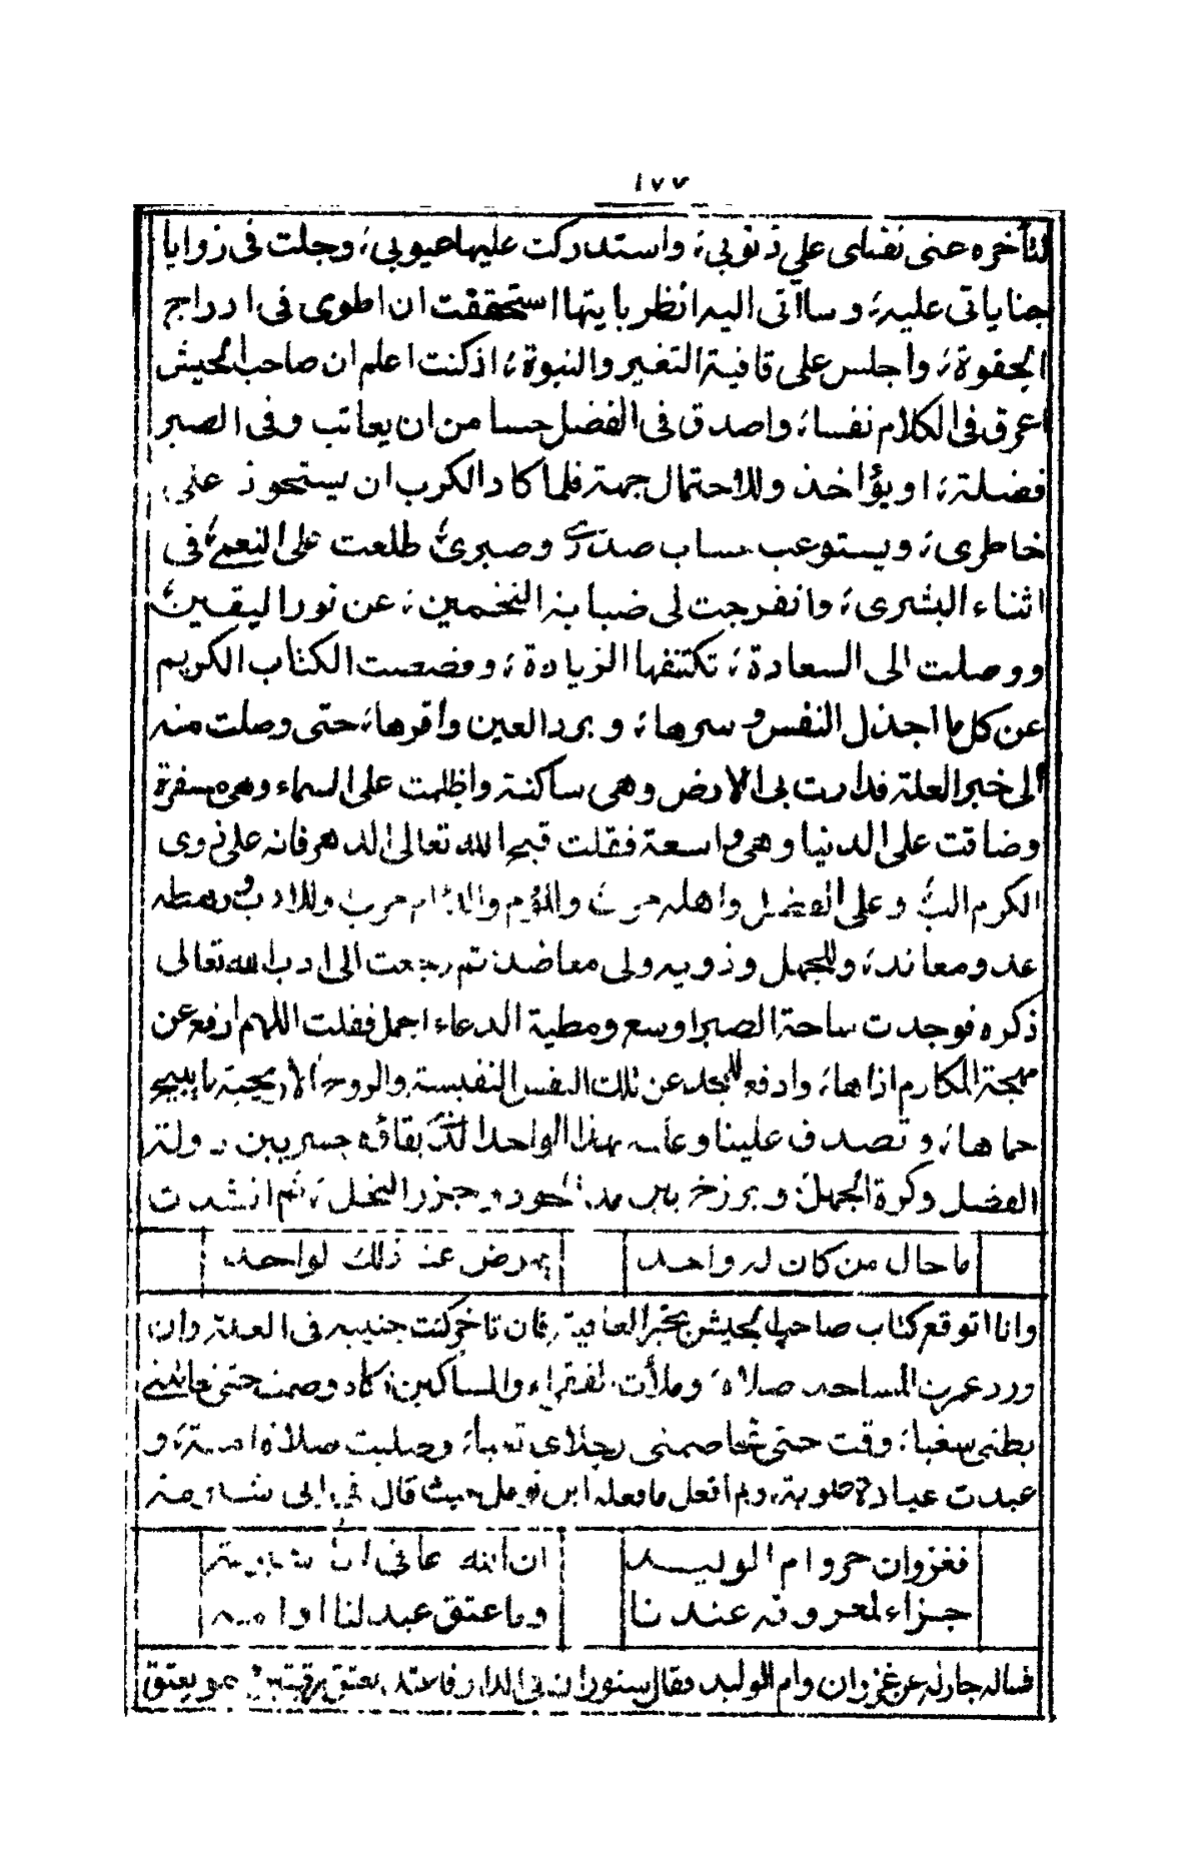 ١٧٧
لتأخره عنى نفسى على ذنوبى، واستدركت عليها عيوبى، وجلت فى زوايا
جناياتى عليه، وسااتى اليه انظر بايتها استحققت ان اطوى فى ادراج
الجفوة، واجلس على قافية التغير والنبوة، اذ كنت اعلم ان صاحب الجيش
اعرق فى الكلام نفسا، واصدق فى الفضل حسا من ان يعاتب وفى الصبر
فضلة، او يؤاخذ وللاحتمال جمة فلما كاد الكرب ان يستحوذ على
خاطرى، ويستوعب مساب صدرى وصبرى، طلعت على النعمى فى
اثناء البشرى، وانفرجت لى ضبابة التخمين، عن نور اليقين،
ووصلت الى السعادة، تكتنفها الزيادة، وفضضت الكتاب الكريم
عن كل ما اجذل النفس وسرها، وبرد العين واقرها، حتى وصلت منه
الى خبر العلة فدارت بى الارض وهى ساكنة واظلمت على السماء وهى مسفرة
وضاقت على الدنيا وهى واسعة فقلت قبح الله تعالى الدهر فانه على ذوى
الكرم الب، وعلى الفضل واهله حرب وللؤم واللئام حرب وللادب ورهطه
عدو معاند، وللجهل وذويه ولى معاضد ثم رجعت الى ادب الله تعالى
ذكره فوجدت ساحة الصبر اوسع ومطية الدعاء اجمل فقلت اللهم ارفع عن
مهجة المكارم اذاها، وادفع للمجد عن تلك النفس النفيسة والروح الاريحية ما يبيح
حماها، وتصدق علينا وعليه بهذا الواحد الذى بقاؤه جسر بين دولة
الفضل وكرة الجهل، وبرزخ بين مد الجود وجزر البخل، ثم انشدت
ما حال من كان له واحد يمرض عند ذلك لواحد
وانا اتوقع كتاب صاحب الجيش بخبر العافية، فان تاخر كنت جنيبه فى العلة وان
ورد عمرت المساجد صلاة، وملأت الفقراء والمساكين زكاة وصمت حتى عاتبنى
بطنى سغبا، وقمت حتى تخاصمنى رجلاى تعبا، وصليت صلاة، و
عبدت عبادة، ولم افعل ما فعله ابن حيث قال فى ابى
فغزوان حر وام الوليد ان الله عافى ابا
جزاء لمعروفه عندنا وما عتق عبد لنا او امه
فساله جاره عن غزوان وام الوليد فقال سنوران فى الدار يعتق